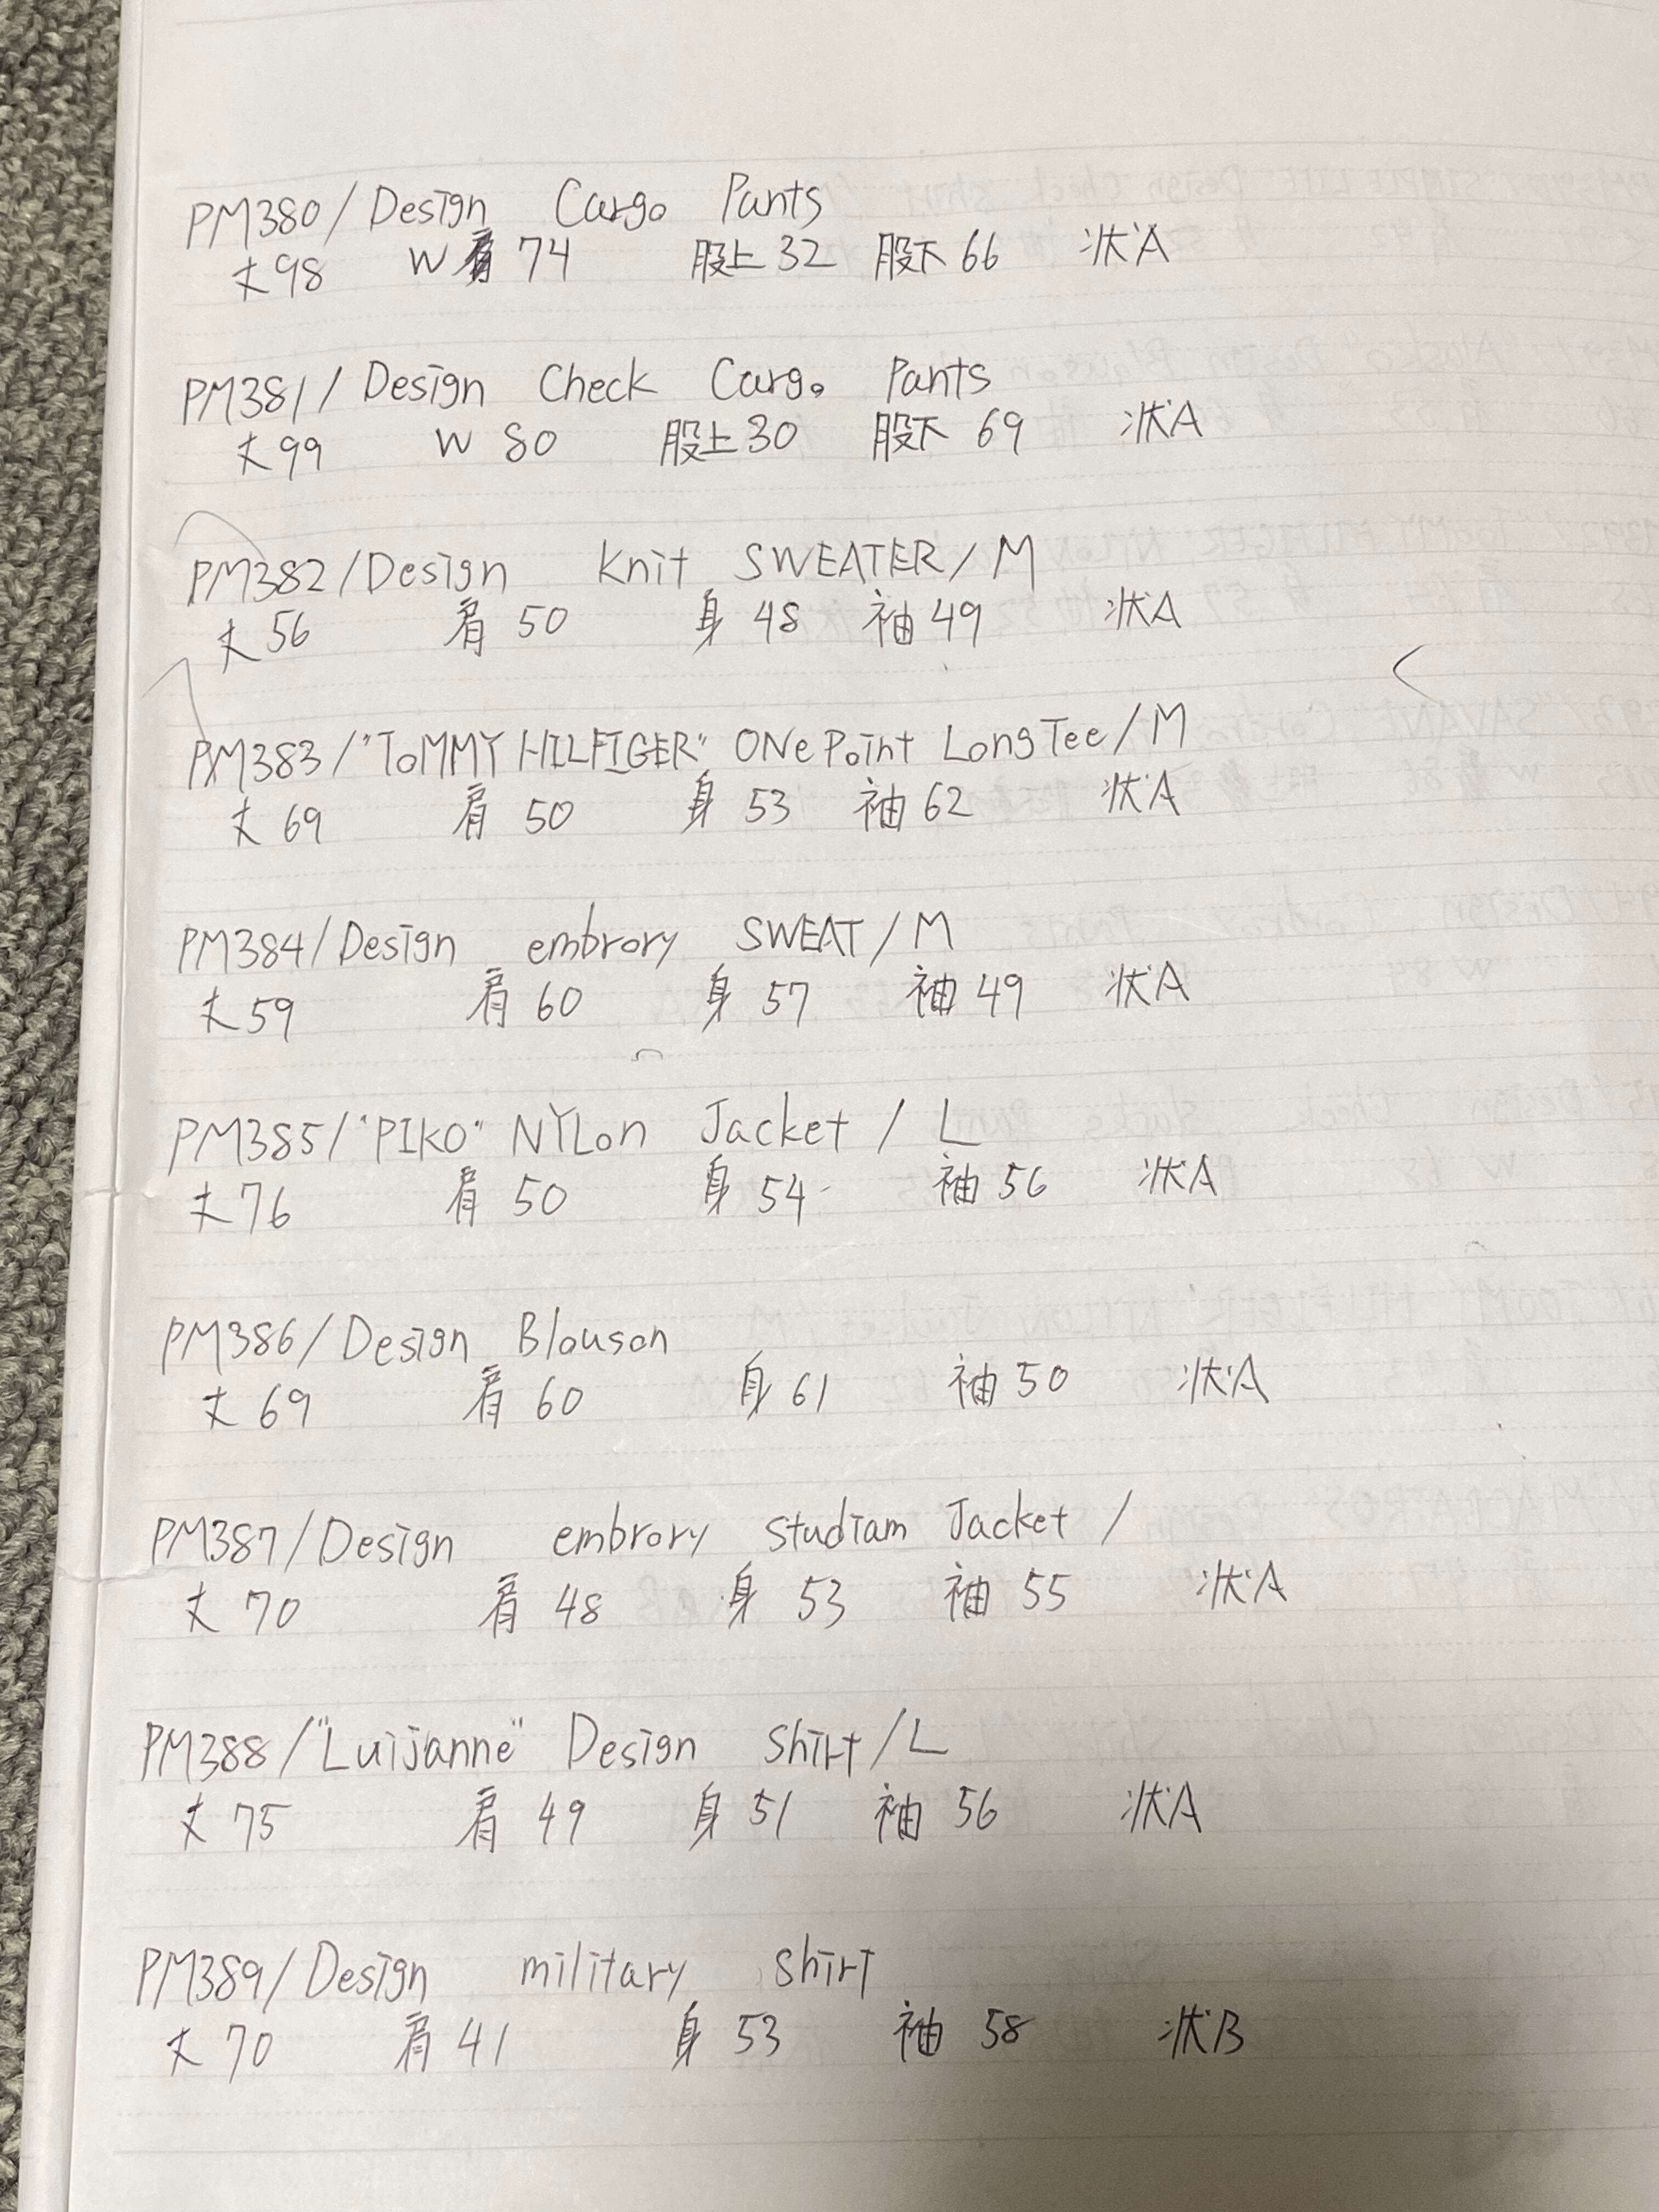 PM380/Design Cargo Pants
丈98 W 74 股上32 股下66 状A
PM381/Design Check Cargo Pants
丈99 W 80 股上30 股下69 状A
PM382/Design knit SWEATER/M
丈56 肩50 身48 袖49 状A
PM383/"ToMMY HILFIGER" ONe Point Long Tee/M
丈69 肩50 身53 袖62 状A
PM384/Design embrory SWEAT/M
丈59 肩60 身57 袖49 状A
PM385/"PIKO" NYLon Jacket/L
丈76 肩50 身54 袖56 状A
PM386/Design Blouson
丈69 肩60 身61 袖50 状A
PM387/Design embrory studiam Jacket/
丈70 肩48 身53 袖55 状A
PM388/"Luijanne" Design shirt/L
丈75 肩49 身51 袖56 状A
PM389/Design military shirt
丈70 肩41 身53 袖58 状B